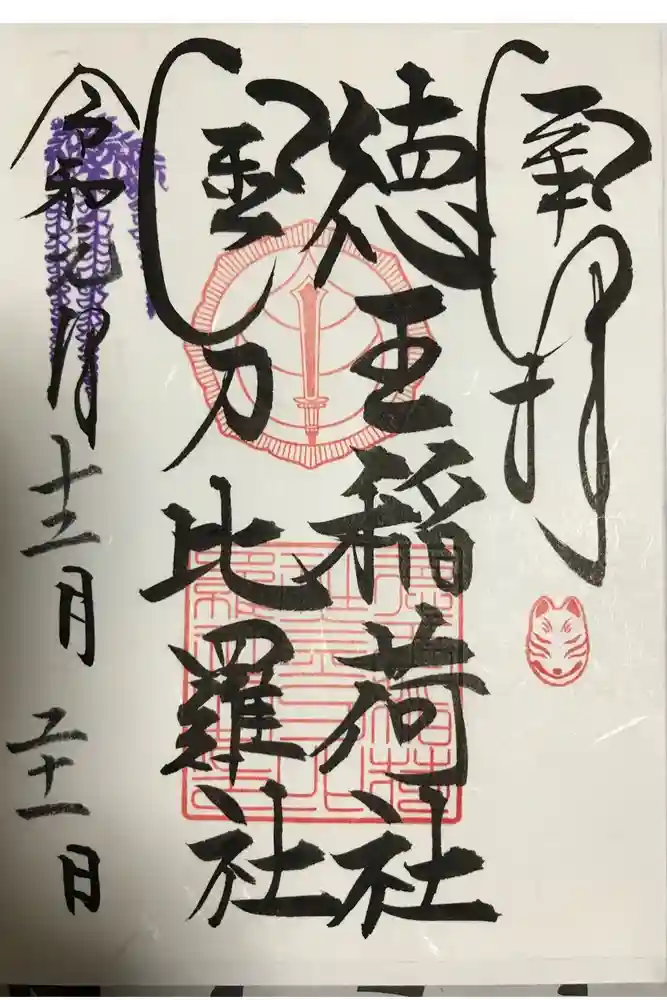 奉拝
徳王稲荷社
金刀比羅社
令和元年
十二月
二十一日